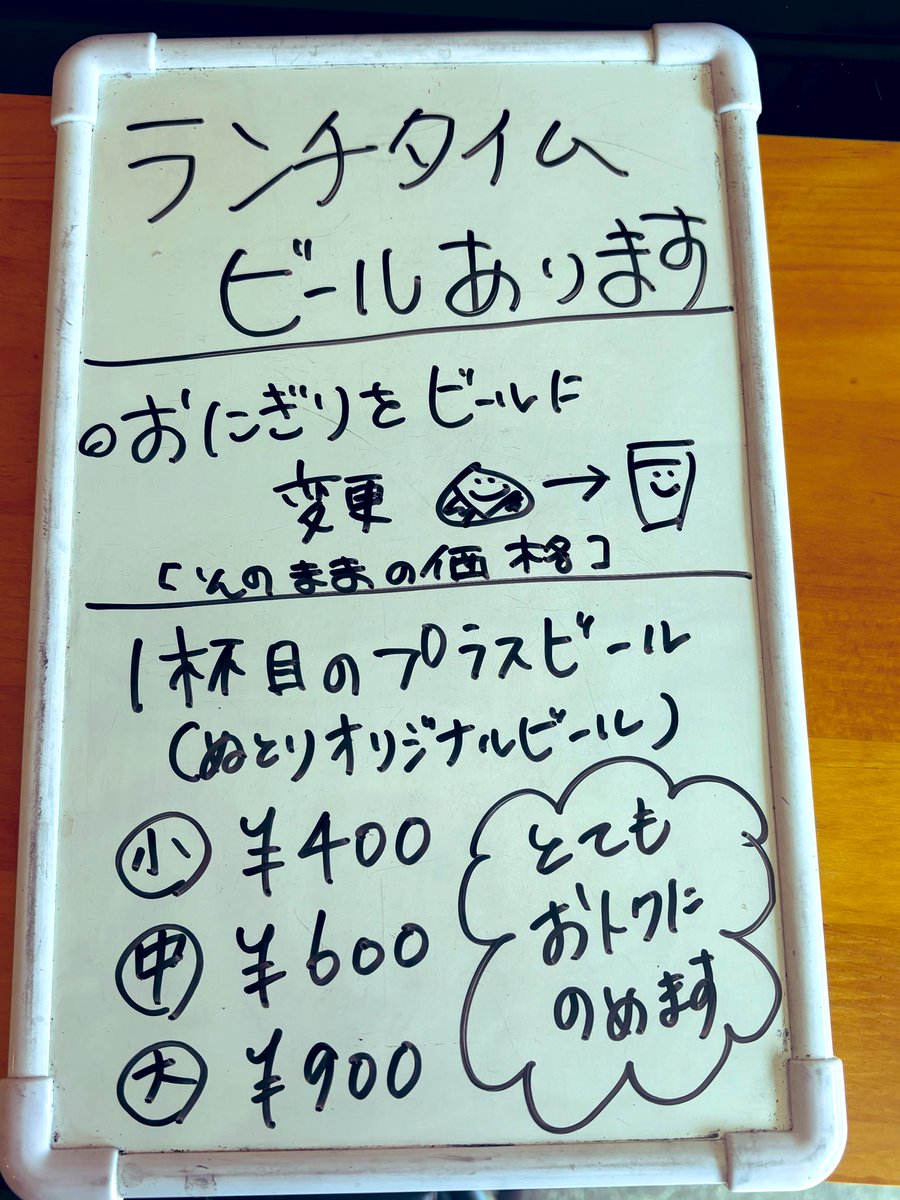 ランチタイム
ビールあります
◎おにぎりをビールに
変更 →
「そのままの価格」
1杯目のプラスビール
(ぬとりオリジナルビール)
小 ¥400
中 ¥600
大 ¥900
とても
おトクに
のめます